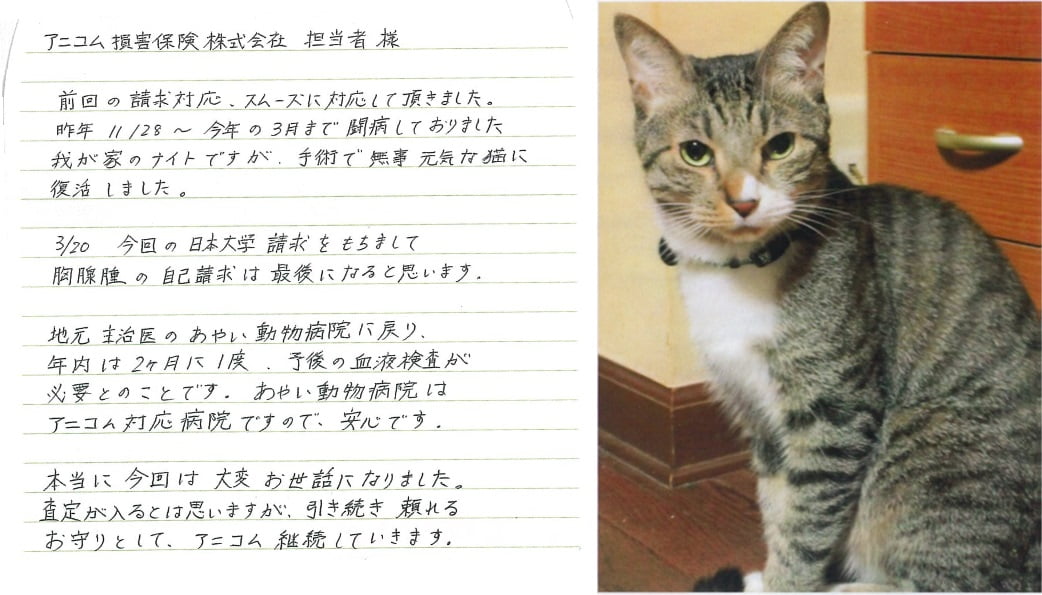 アニコム損害保険株式会社 担当者様
前回の請求対応、スムーズに対応して頂きました。
昨年 11/28 ~ 今年の3月まで闘病しておりました
我が家のナイトですが、手術で無事元気な猫に
復活しました。
3/20 今回の日本大学請求をもちまして
胸腺腫の自己請求は最後になると思います。
地元主治医のあやい動物病院に戻り、
年内は2ヶ月に1度、予後の血液検査が
必要とのことです。あやい動物病院は
アニコム対応病院ですので、安心です。
本当に今回は大変お世話になりました。
査定が入るとは思いますが、引き続き頼れる
お守りとして、アニコム継続していきます。